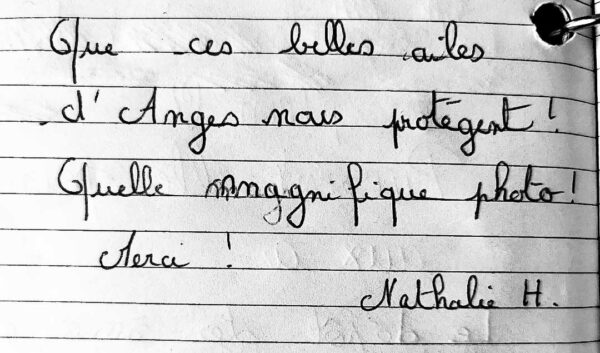 Que ces belles ailes
d'Anges nous protègent !
Quelle magnifique photo !
Merci !
Nathalie H.